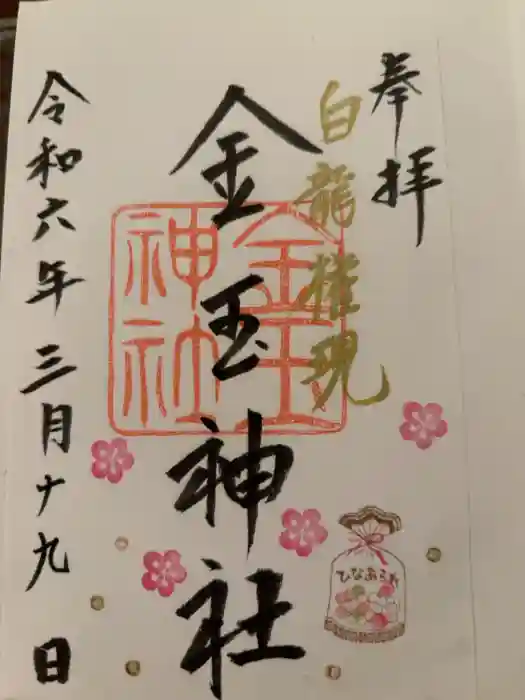 奉拝
白龍権現
金玉神社
金玉神社
令和六年三月十九日
ひなあられ